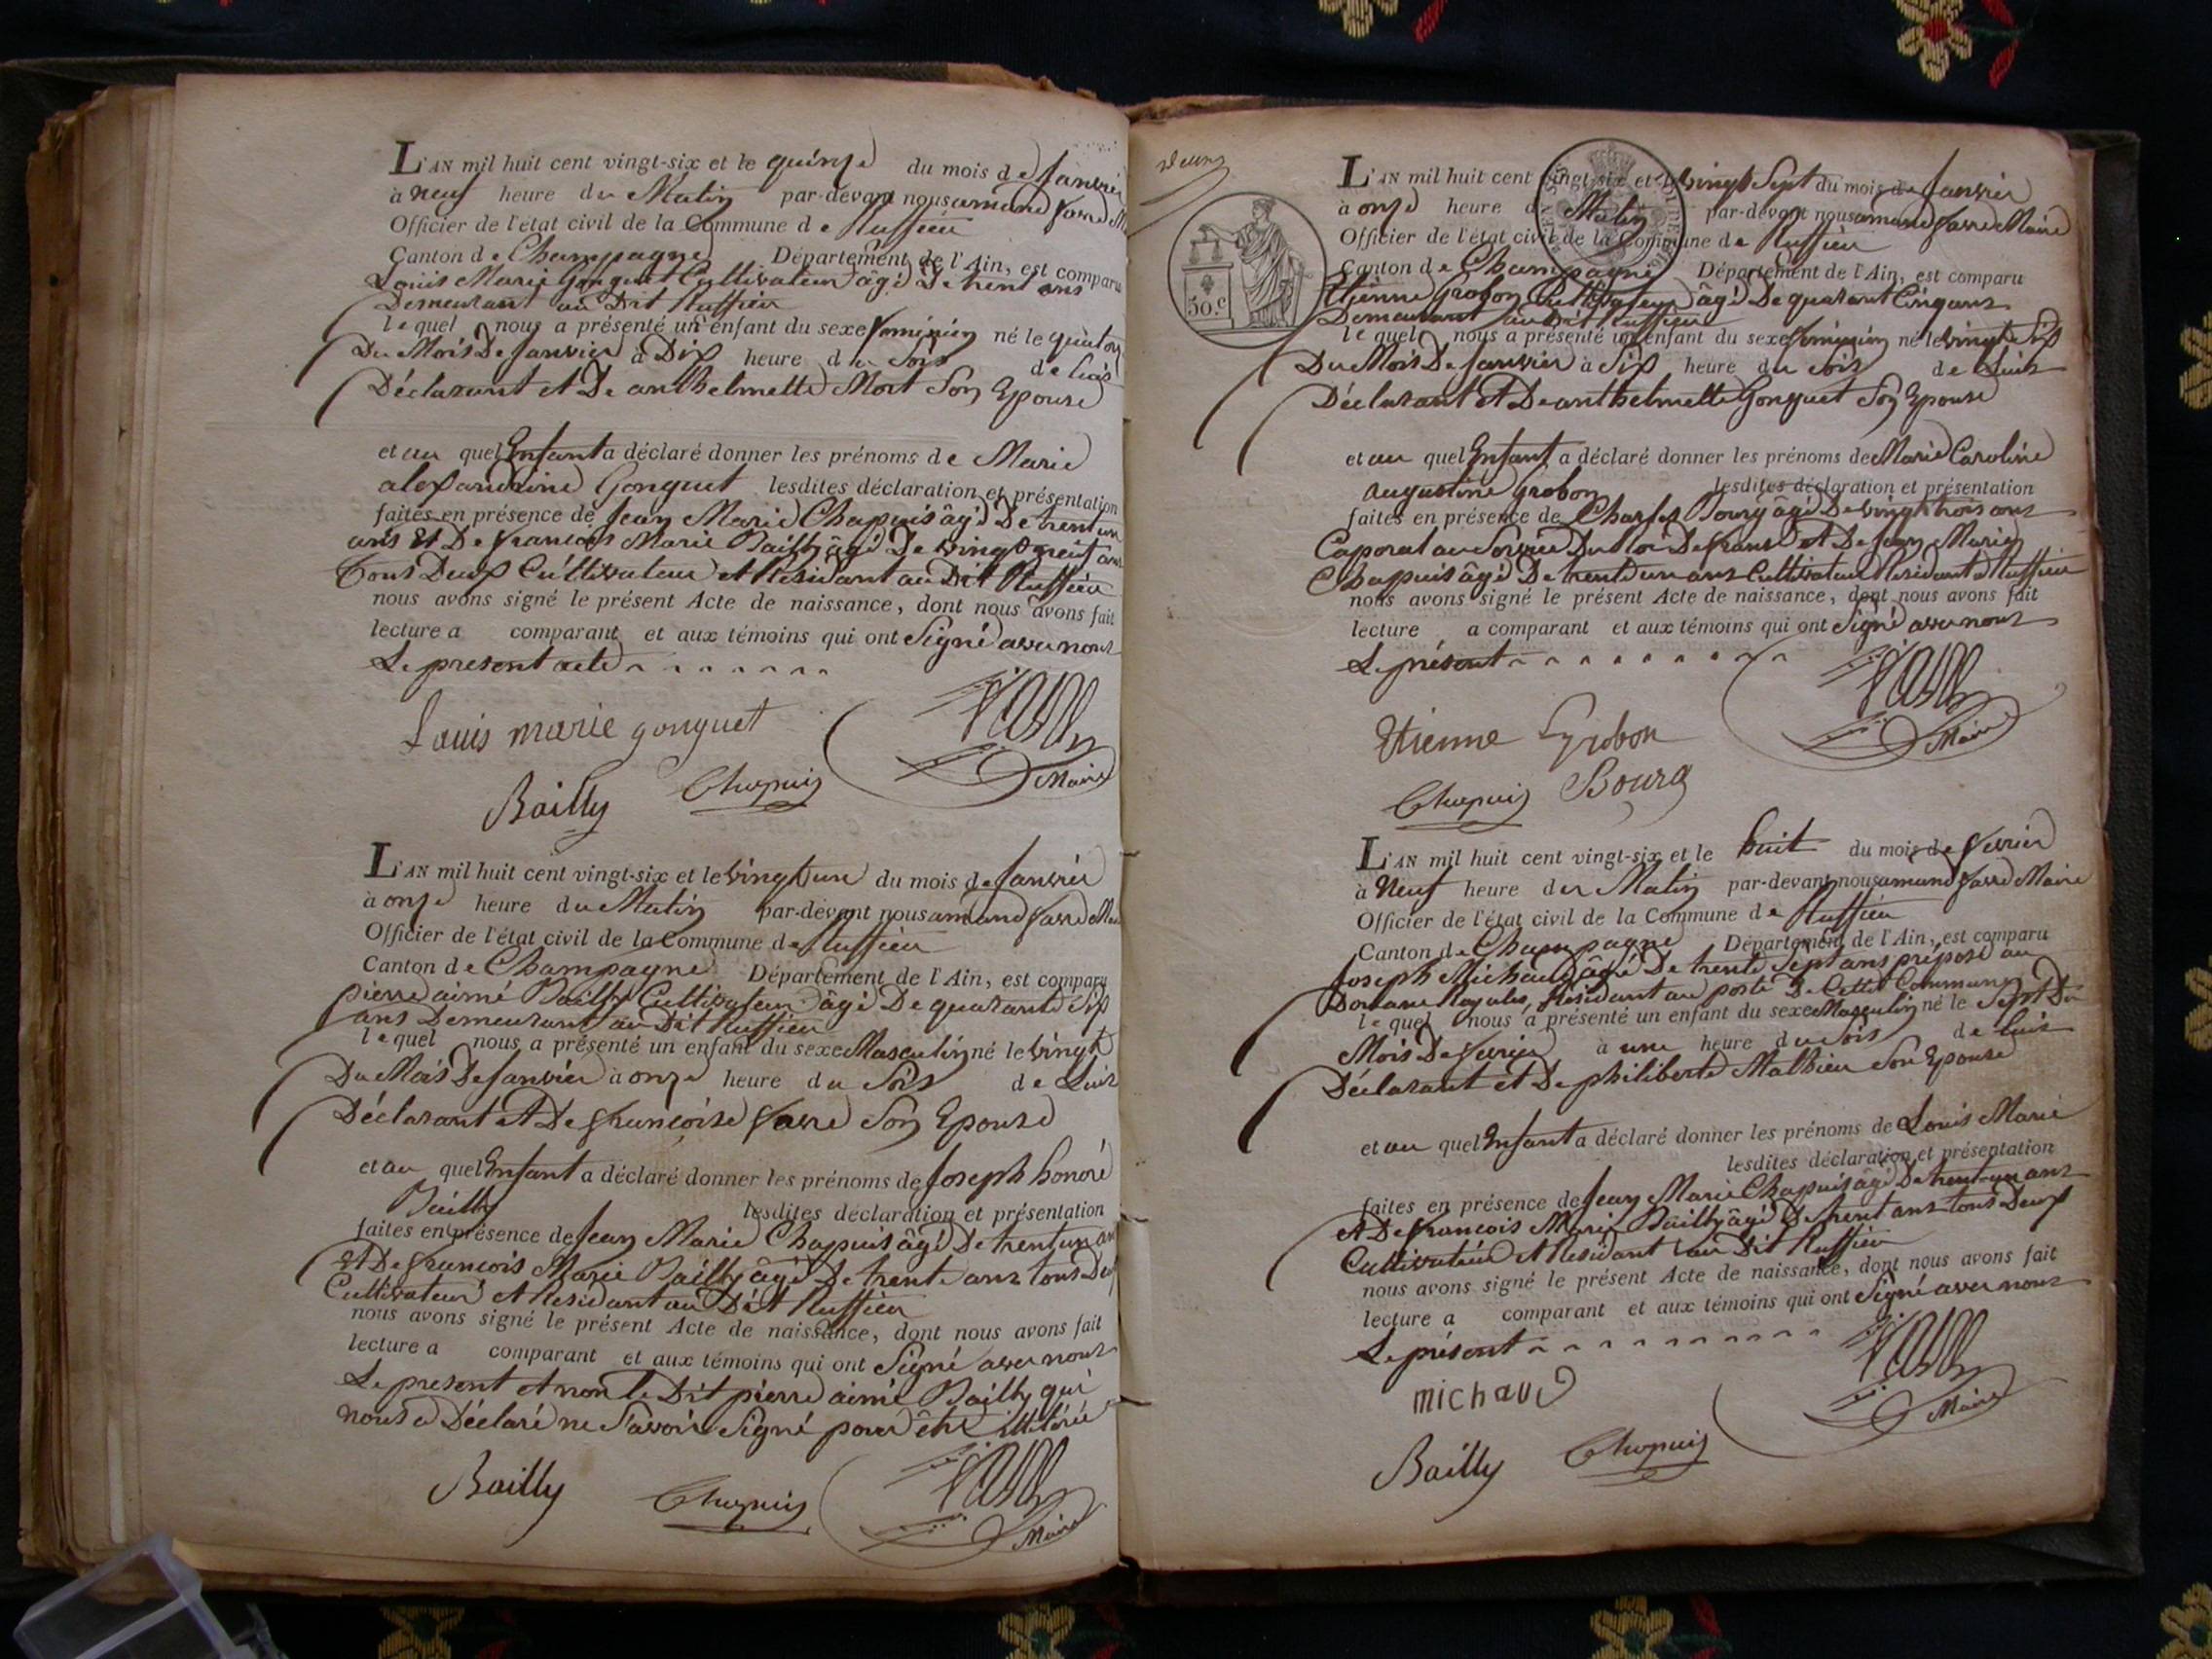 L'AN mil huit cent vingt-six et le quinze du mois de Janvier
à neuf heure du Matin par-devant nous amand favre
Officier de l'état civil de la Commune de Ruffieu
Canton de Champagne Département de l'Ain, est comparu
Louis Marie Gonguet Cultivateur âgé De trent ans
Demeurant au Dit Ruffieu
lequel nous a présenté un enfant du sexe feminin né le quatorz
Du Mois De Janvier à Dix heure du Soir de luis
Déclarant et De anthelmette Mort Son Epouse
et au quel Enfant a déclaré donner les prénoms de Marie
alexandrine Gonguet lesdites déclaration et présentation
faites en présence de Jean Marie Chapuis âgé De trent un
ans Et De francois Marie Bailly âgé De vingt neuf ans
Tous Deux Cultivateur et Residant au Dit Ruffieu
nous avons signé le présent Acte de naissance, dont nous avons fait
lecture a comparant et aux témoins qui ont Signé avec nous
Le present acte
Louis marie gonguet
Bailly Chapuis Maire
L'AN mil huit cent vingt-six et le vingt un du mois de Janvier
à onze heure du Matin par-devant nous amand favre
Officier de l'état civil de la Commune de Ruffieu
Canton de Champagne Département de l'Ain, est comparu
pierre aimé Bailly Cultivateur âgé De quarante Six
ans Demeurant au Dit Ruffieu
lequel nous a présenté un enfant du sexe Masculin né le vingt
Du Mois De Janvier à onze heure du Soir de Luis
Déclarant et De françoise favre Son Epouse
et au quel Enfant a déclaré donner les prénoms de Joseph honoré
Bailly lesdites déclaration et présentation
faites en présence de Jean Marie Chapuis âgé De trent un an
Et De francois Marie Bailly âgé De trente ans tous Deux
Cultivateur et Residant au Dit Ruffieu
nous avons signé le présent Acte de naissance, dont nous avons fait
lecture a comparant et aux témoins qui ont Signé avec nous
Le present et non le Dit pierre aimé Bailly qui
nous a Déclaré ne Savoir Signé pour être illitérée
Bailly Chapuis Maire
50.c
L'AN mil huit cent vingt-six et le vingt Sept du mois de Janvier
à onze heure du Matin par-devant nous amand favre Maire
Officier de l'état civil de la Commune de Ruffieu
Canton de Champagne Département de l'Ain, est comparu
Etienne Grobon Cultivateur âgé De quarant Cinq ans
Demeurant au Dit Ruffieu
lequel nous a présenté un enfant du sexe feminin né le vingt Six
Du Mois De Janvier à Six heure du Soir de Luis
Déclarant et De anthelmette Gonguet Son Epouse
et au quel Enfant a déclaré donner les prénoms de Marie Caroline
augustine Grobon lesdites déclaration et présentation
faites en présence de Charles Bourg âgé De vingt trois ans
Caporal au Service Du Roi De france et De Jean Marie
Chapuis âgé De trente un ans Cultivateur Residant a Ruffieu
nous avons signé le présent Acte de naissance, dont nous avons fait
lecture a comparant et aux témoins qui ont Signé avec nous
Le présent
Etienne Grobon
Chapuis Bourg Maire
L'AN mil huit cent vingt-six et le huit du mois de fevrier
à Neuf heure du Matin par-devant nous amand favre Maire
Officier de l'état civil de la Commune de Ruffieu
Canton de Champagne Département de l'Ain, est comparu
Joseph Michaud âgé De trente Sept ans préposé au
Douane Royales, Residant au poste De Cette Commune
lequel nous a présenté un enfant du sexe Masculin né le Sept Du
Mois De fevrier à une heure du Soir de luis
Déclarant et De philiberte Mathieu Son Epouse
et au quel Enfant a déclaré donner les prénoms de Louis Marie
lesdites déclaration et présentation
faites en présence de Jean Marie Chapuis âgé De trent un ans
et De francois Marie Bailly âgé De trent ans tous Deux
Cultivateur et Residant au Dit Ruffieu
nous avons signé le présent Acte de naissance, dont nous avons fait
lecture a comparant et aux témoins qui ont Signé avec nous
Le présent
michaud
Bailly Chapuis Maire